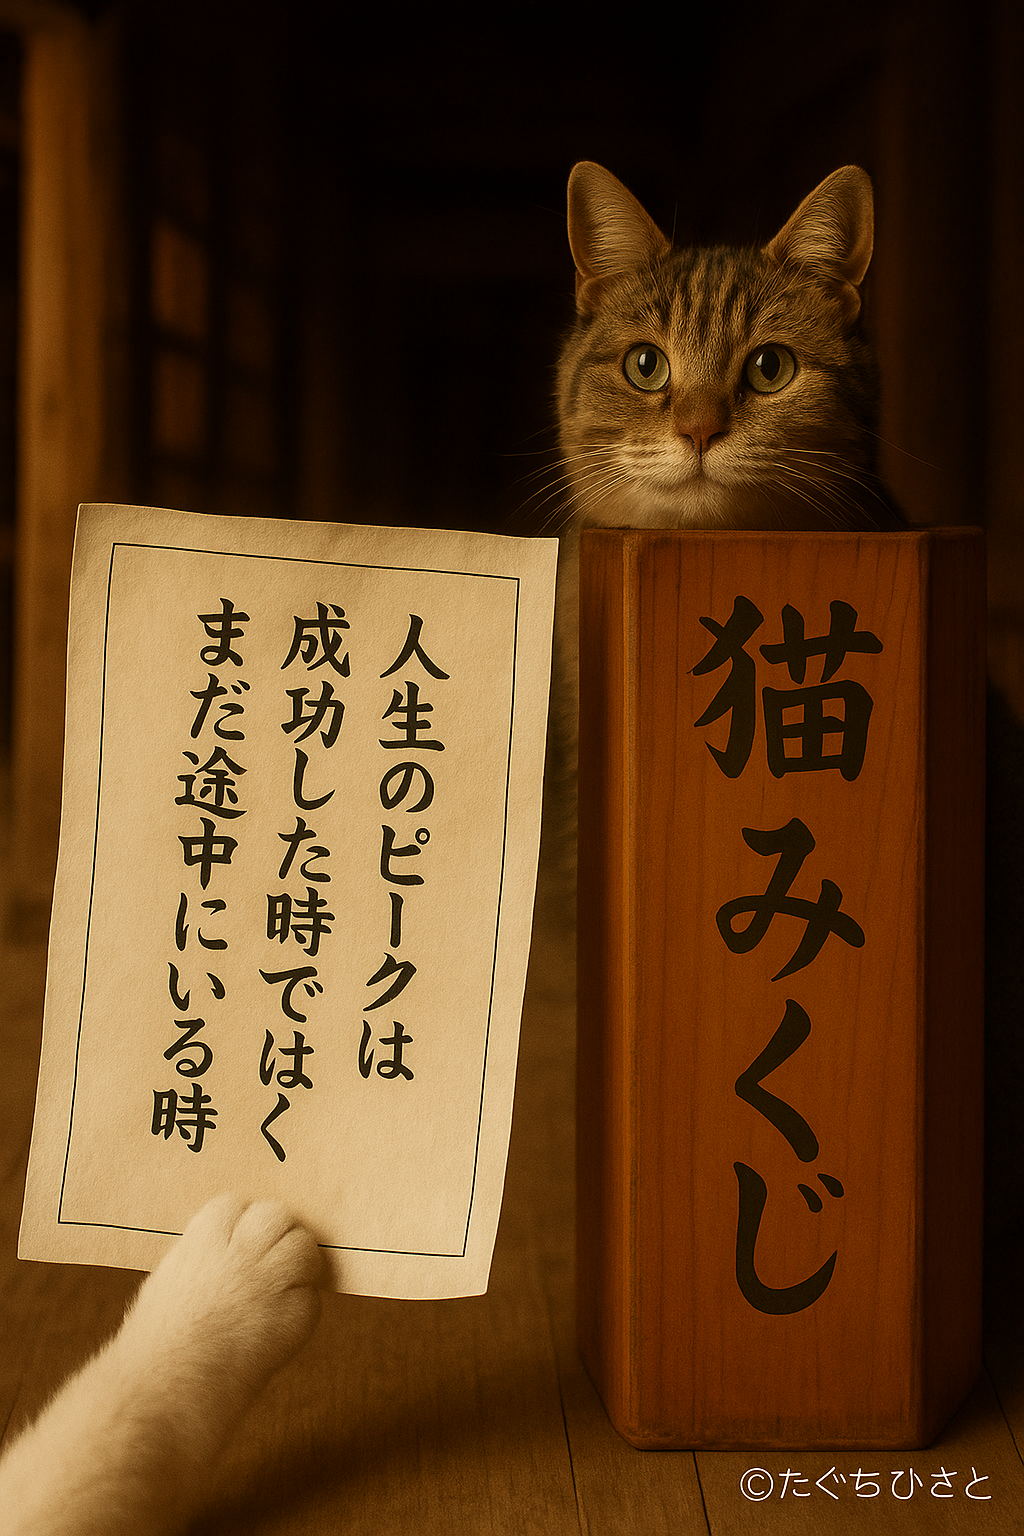 人生のピークは
成功した時ではく
まだ途中にいる時
猫みくじ
©たぐちひさと